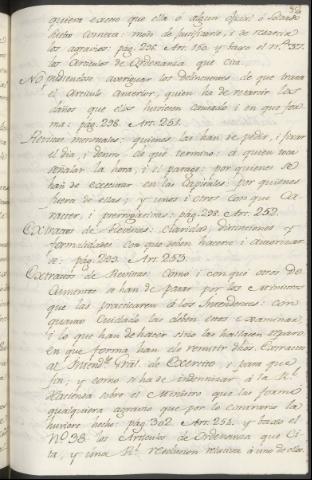 quiera exceso que ella ó algun Oficial ó Soldado
hecho cometa: modo de justificarlo, i de resarcir
los agravios: pág. 236. Art. 250. y tanto el nº 37.
los Articulos de Ordenanza que cita.
No pudiendose averiguar los delincuentes de que trata
el Articulo anterior, quien ha de resarcir los
daños que ellos hubieren causado i en que for
ma: pág. 298. Art. 251.
Revistas mensuales: quienes las han de pedir, i fixar
el dia, i dentro de qué termino: á quien toca
señalar la hora, i el parage: por quienes se
han de executar en las Capitales: por quienes
fuera de ellas; y unos i otros con que Ca
racter, i prerrogativas: pág. 298. Art. 252.
Extractos de Revistas: claridad, distinciones y
formalidades con que deben hacerse i autorizar
se: pág. 299. Art. 253.
Extractos de Revistas: como i con qué otros Do
cumentos se han de pasar por los Ministros
que las practicaren á los Intendentes: con
quanto Cuidado los deben estos examinar
i lo que han de hacer si no les hallasen reparo:
en que forma han de remitir dhos. Extractos
al Intendte. Gral. de Exercito, i para que
fin; y como se ha de indemnizar á la Rl.
Hacienda sobre el Ministro que los formó
qualquiera agravio que por lo contrario la
huviere hecho: pág. 302. Art. 254. y tanto el
Nº 38 los Articulos de Ordenanza que Ci
ta, y una Rl. resolucion relativa á uno de ellos.